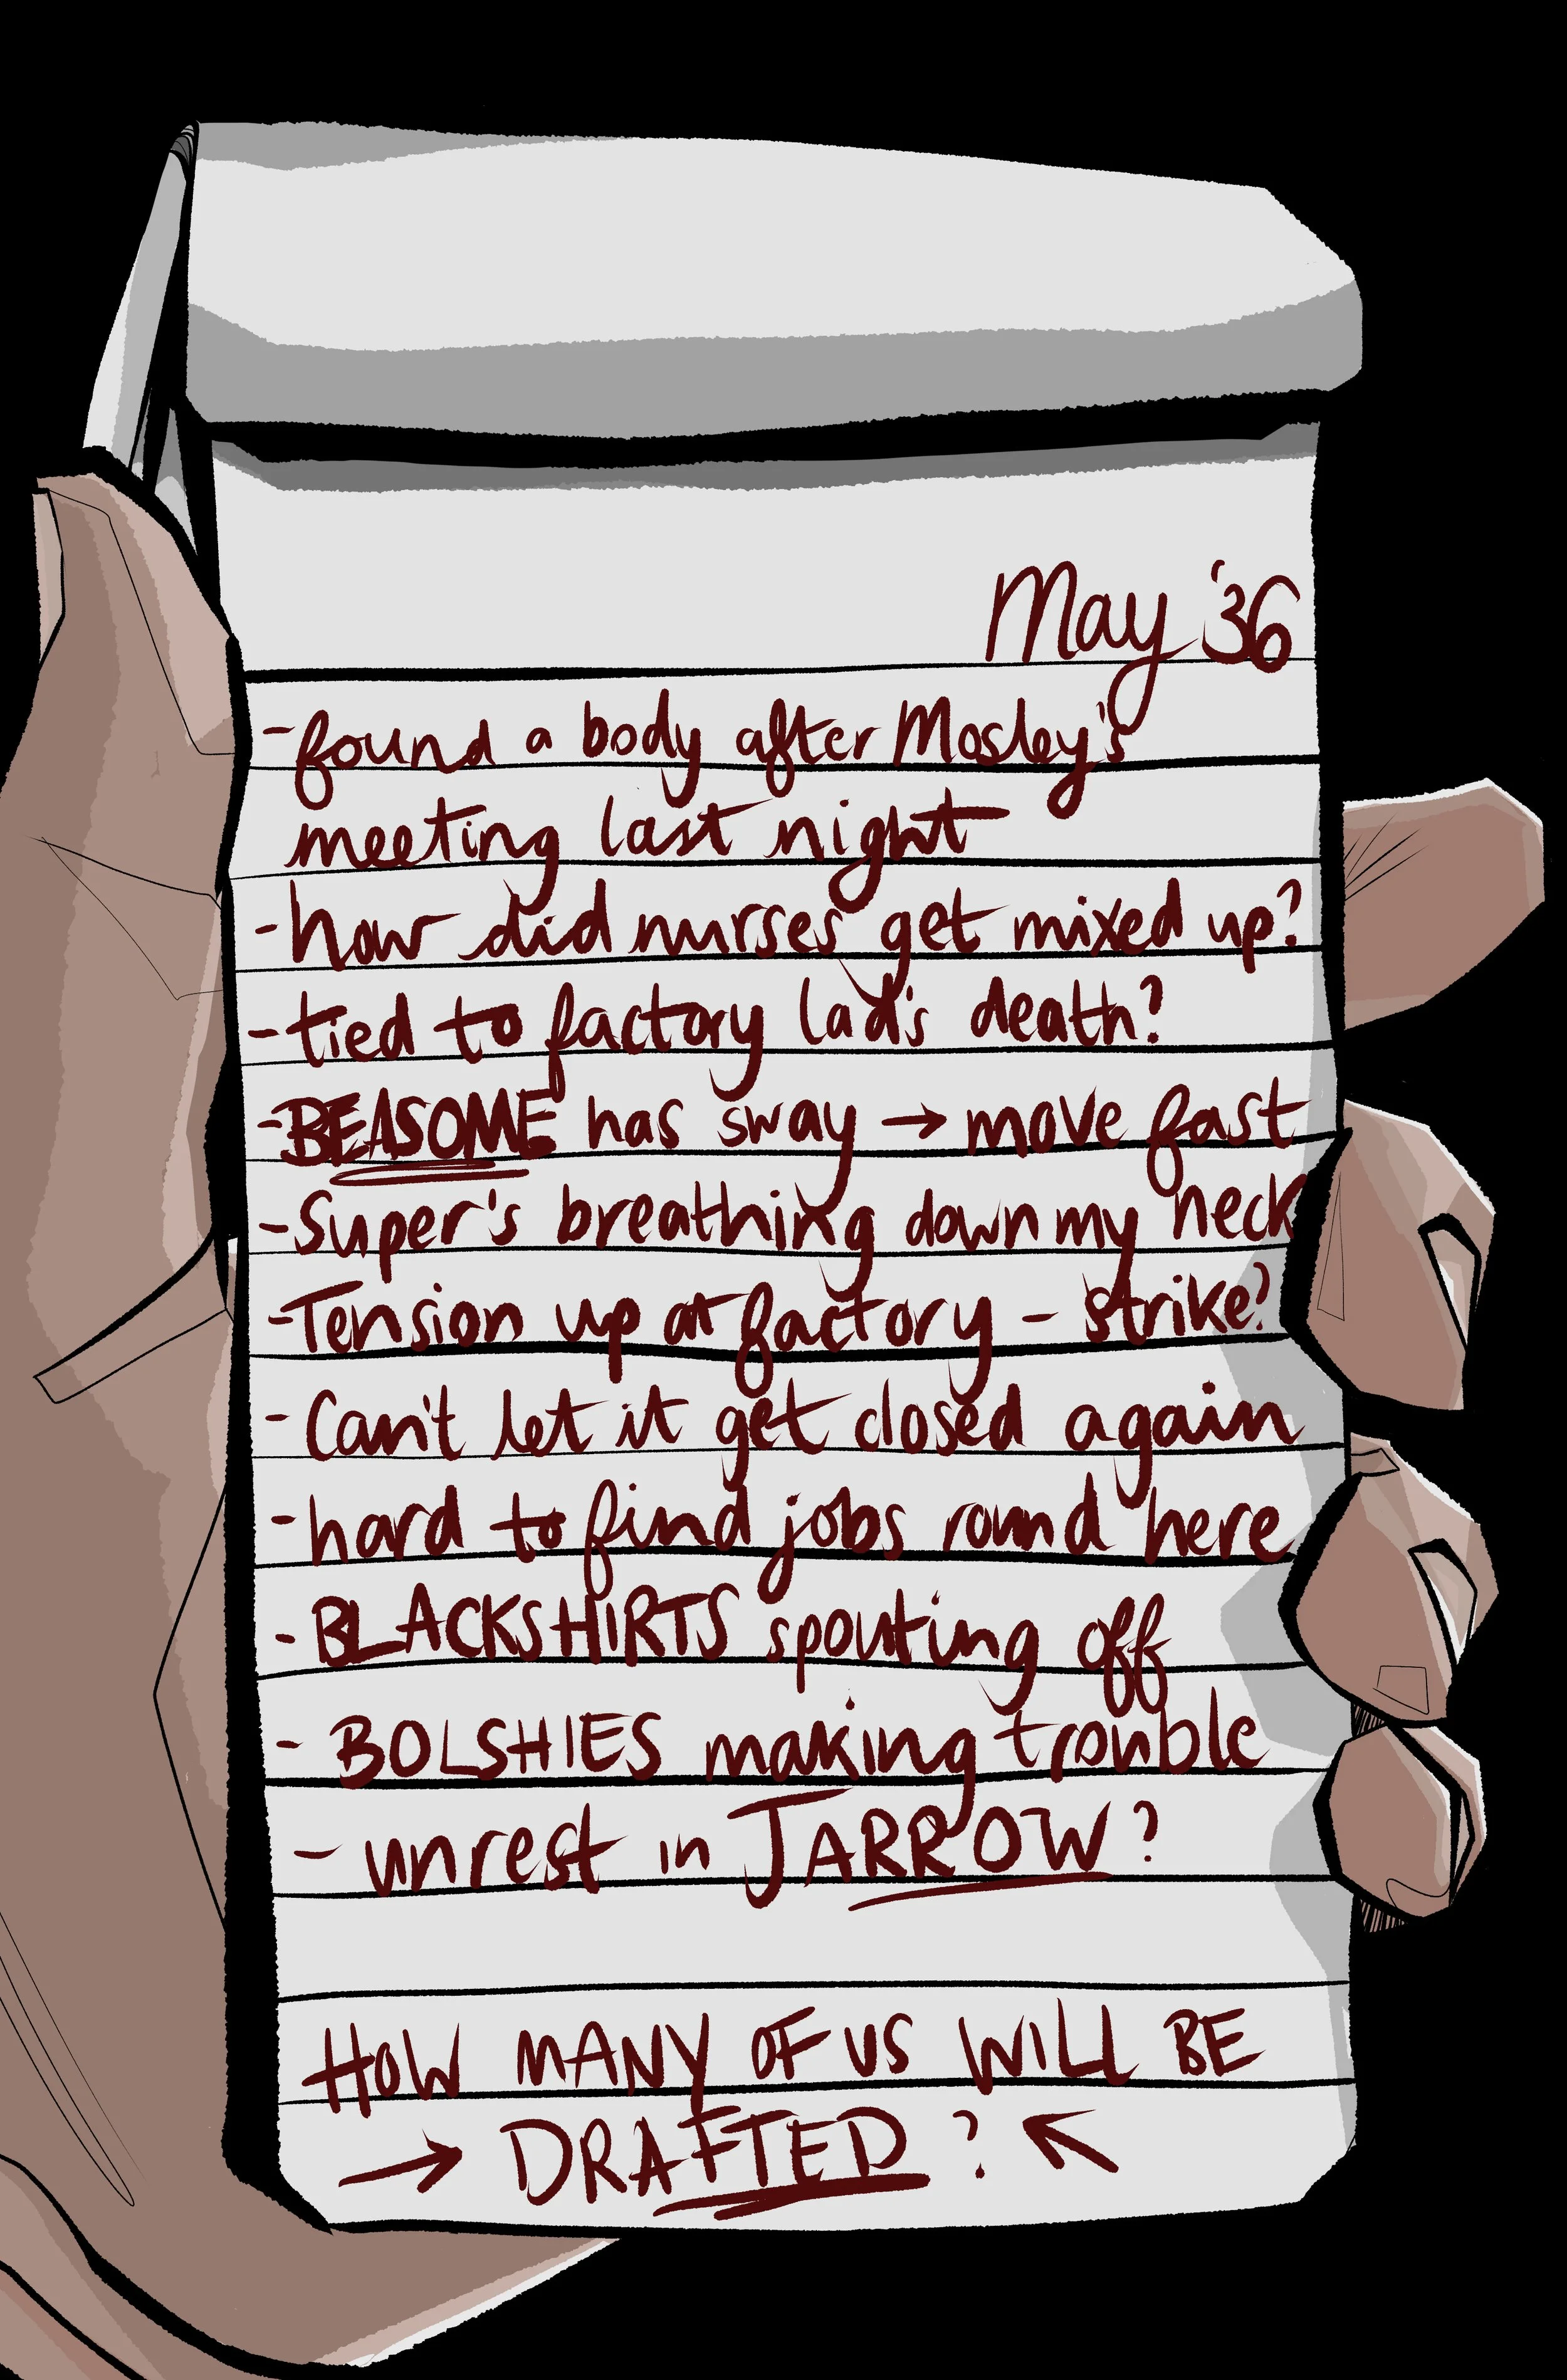 May '36
- found a body after Mosley's
meeting last night
- how did nurses get mixed up?
- tied to factory lad's death?
- BEASOME has sway → move fast
- Super's breathing down my neck
- Tension up at factory - strike?
- Can't let it get closed again
- hard to find jobs round here
- BLACKSHIRTS spouting off
- BOLSHIES making trouble
- unrest in JARROW?
HOW MANY OF US WILL BE
→ DRAFTED? ←